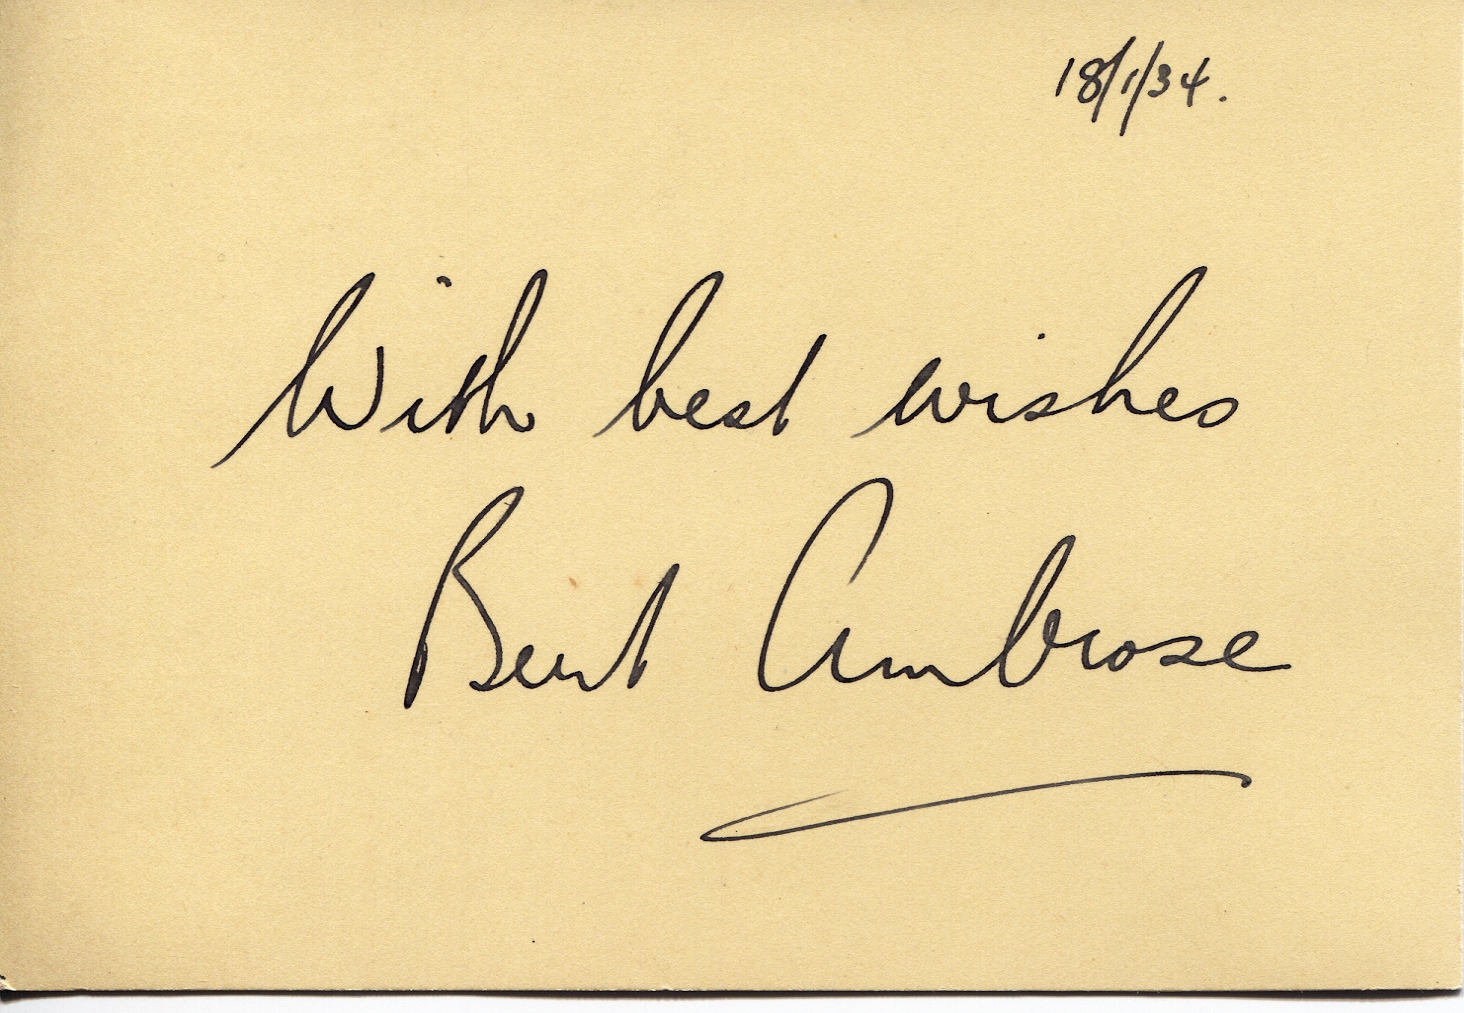 18/1/34.
With best wishes
Bert Ambrose